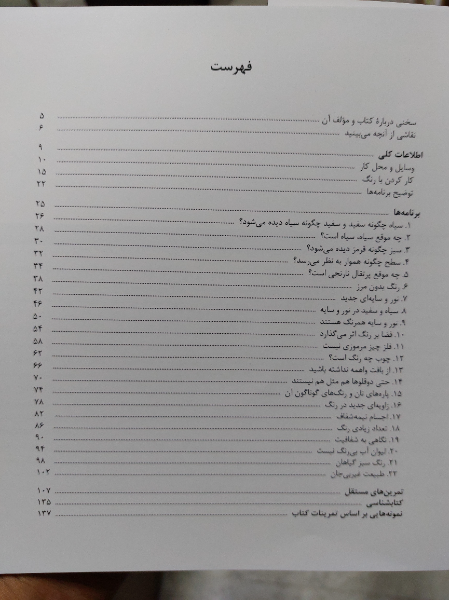 فهرست
سخنی دربارهٔ کتاب و مؤلف آن ۵
نقاشی از آنچه می‌بینید ۶
اطلاعات کلی ۹
وسایل و محل کار ۱۰
کار کردن با رنگ ۱۵
توضیح برنامه‌ها ۲۲
برنامه‌ها ۲۵
۱. سیاه چگونه سفید و سفید چگونه سیاه دیده می‌شود؟ ۲۶
۲. چه موقع سیاه، سیاه است؟ ۲۸
۳. سبز چگونه قرمز دیده می‌شود؟ ۳۰
۴. سطح چگونه هموار به نظر می‌رسد؟ ۳۲
۵. چه موقع پرتقال نارنجی است؟ ۳۴
۶. رنگ بدون مرز ۳۸
۷. نور و سایه‌ای جدید ۴۲
۸. سیاه و سفید در نور و سایه ۴۶
۹. نور و سایه همرنگ هستند ۵۰
۱۰. فضا بر رنگ اثر می‌گذارد ۵۴
۱۱. فلز چیز مرموزی نیست ۵۸
۱۲. چوب چه رنگ است؟ ۶۲
۱۳. از بافت واهمه نداشته باشید ۶۶
۱۴. حتی دوقلوها هم مثل هم نیستند ۷۰
۱۵. پاره‌های نان و رنگ‌های گوناگون آن ۷۴
۱۶. زاویه‌ای جدید در رنگ ۷۸
۱۷. اجسام نیمه‌شفاف ۸۲
۱۸. تعداد زیادی رنگ ۸۶
۱۹. نگاهی به شفافیت ۹۰
۲۰. لیوان آب بی‌رنگ نیست ۹۴
۲۱. رنگ سبز گیاهان ۹۸
۲۲. طبیعت غیربی‌جان ۱۰۲
تمرین‌های مستقل ۱۰۷
کتابشناسی ۱۳۵
نمونه‌هایی بر اساس تمرینات کتاب ۱۳۷